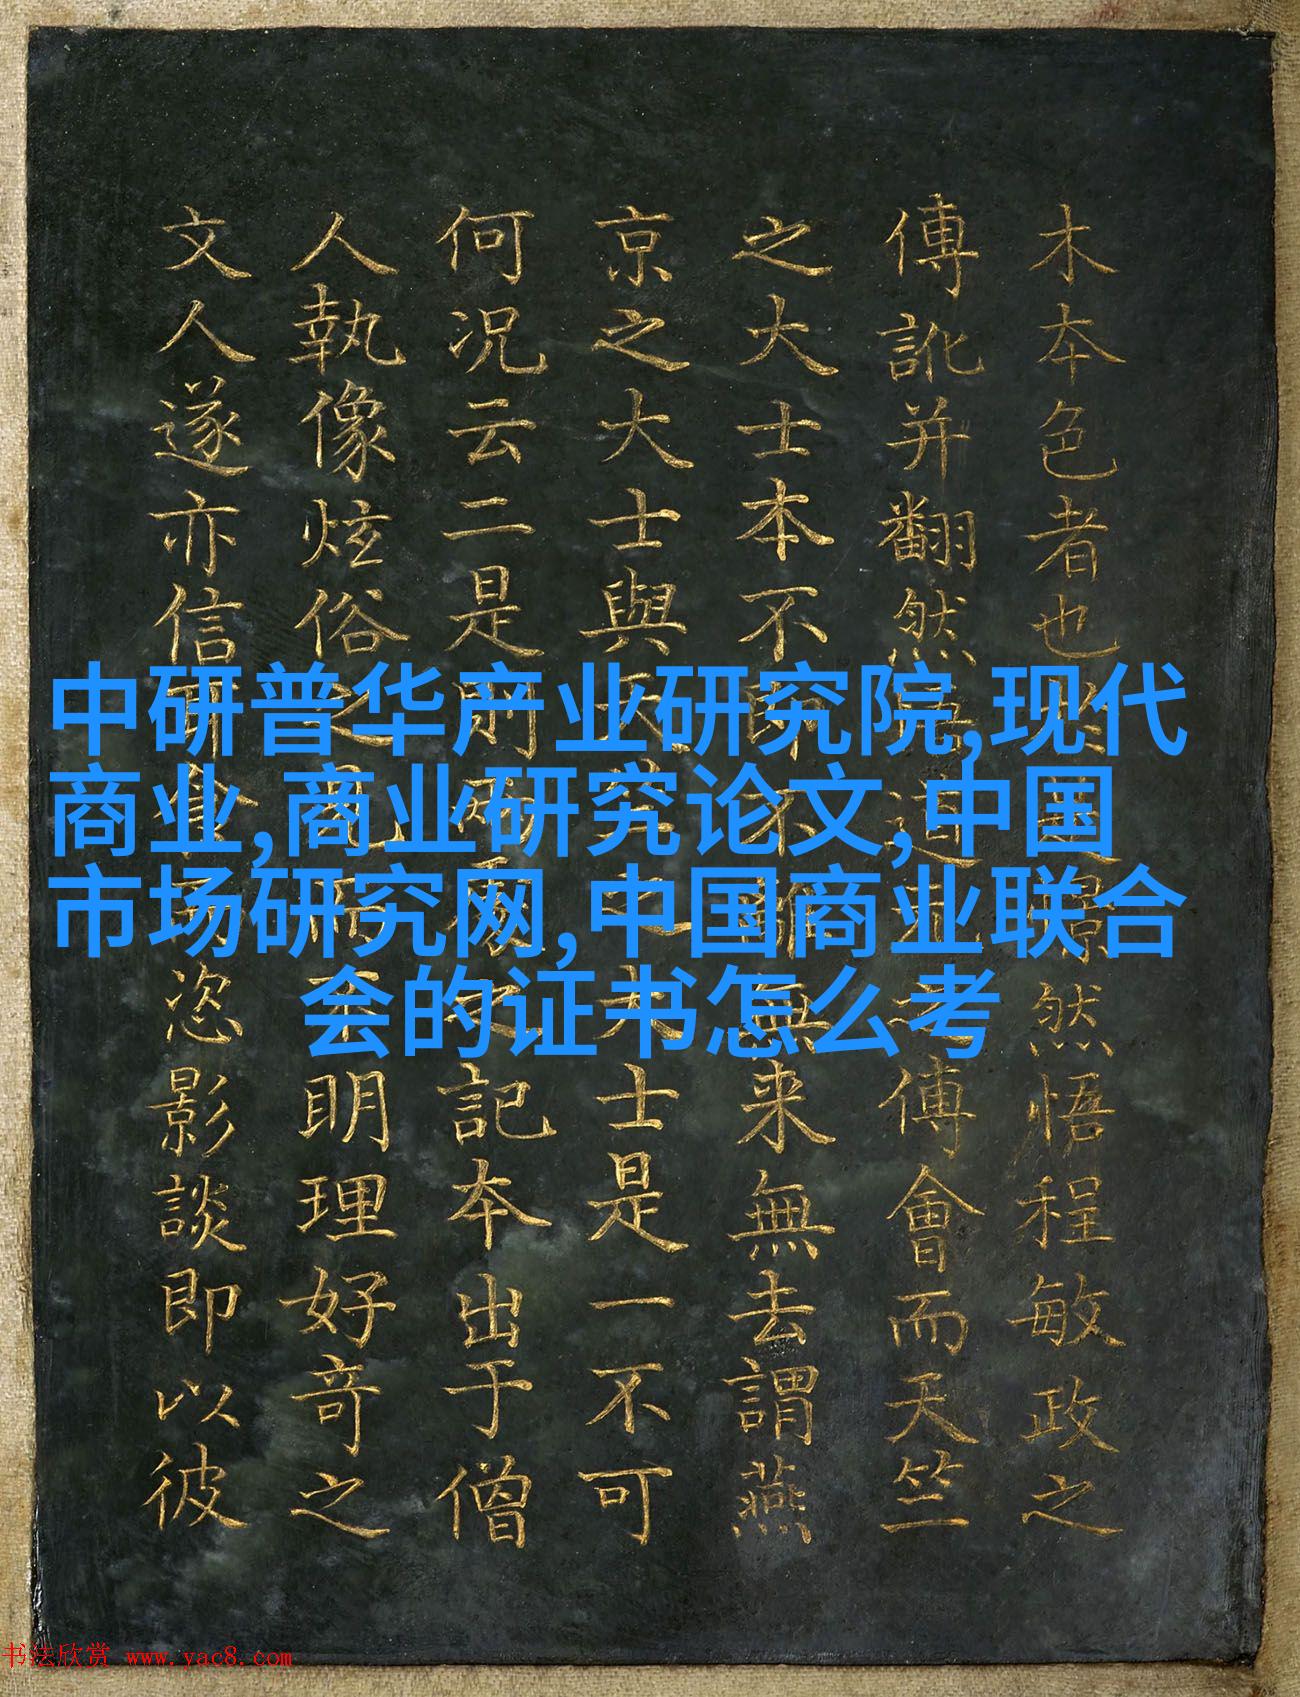 木本色者也然悟程敏政之
傳訛并翻然道傅會而天竺
之大士本不無来無去謂燕
京之大士與天竺之大士是一不可
何况云二是則兩之記本出于僧
人執像炫俗之見而不明理好奇之
文人遂亦信恣影談即以彼
中研普华产业研究院,现代
商业,商业研究论文,中国
市场研究网,中国商业联合
会的证书怎么考
书法欣赏 www.yac8.com